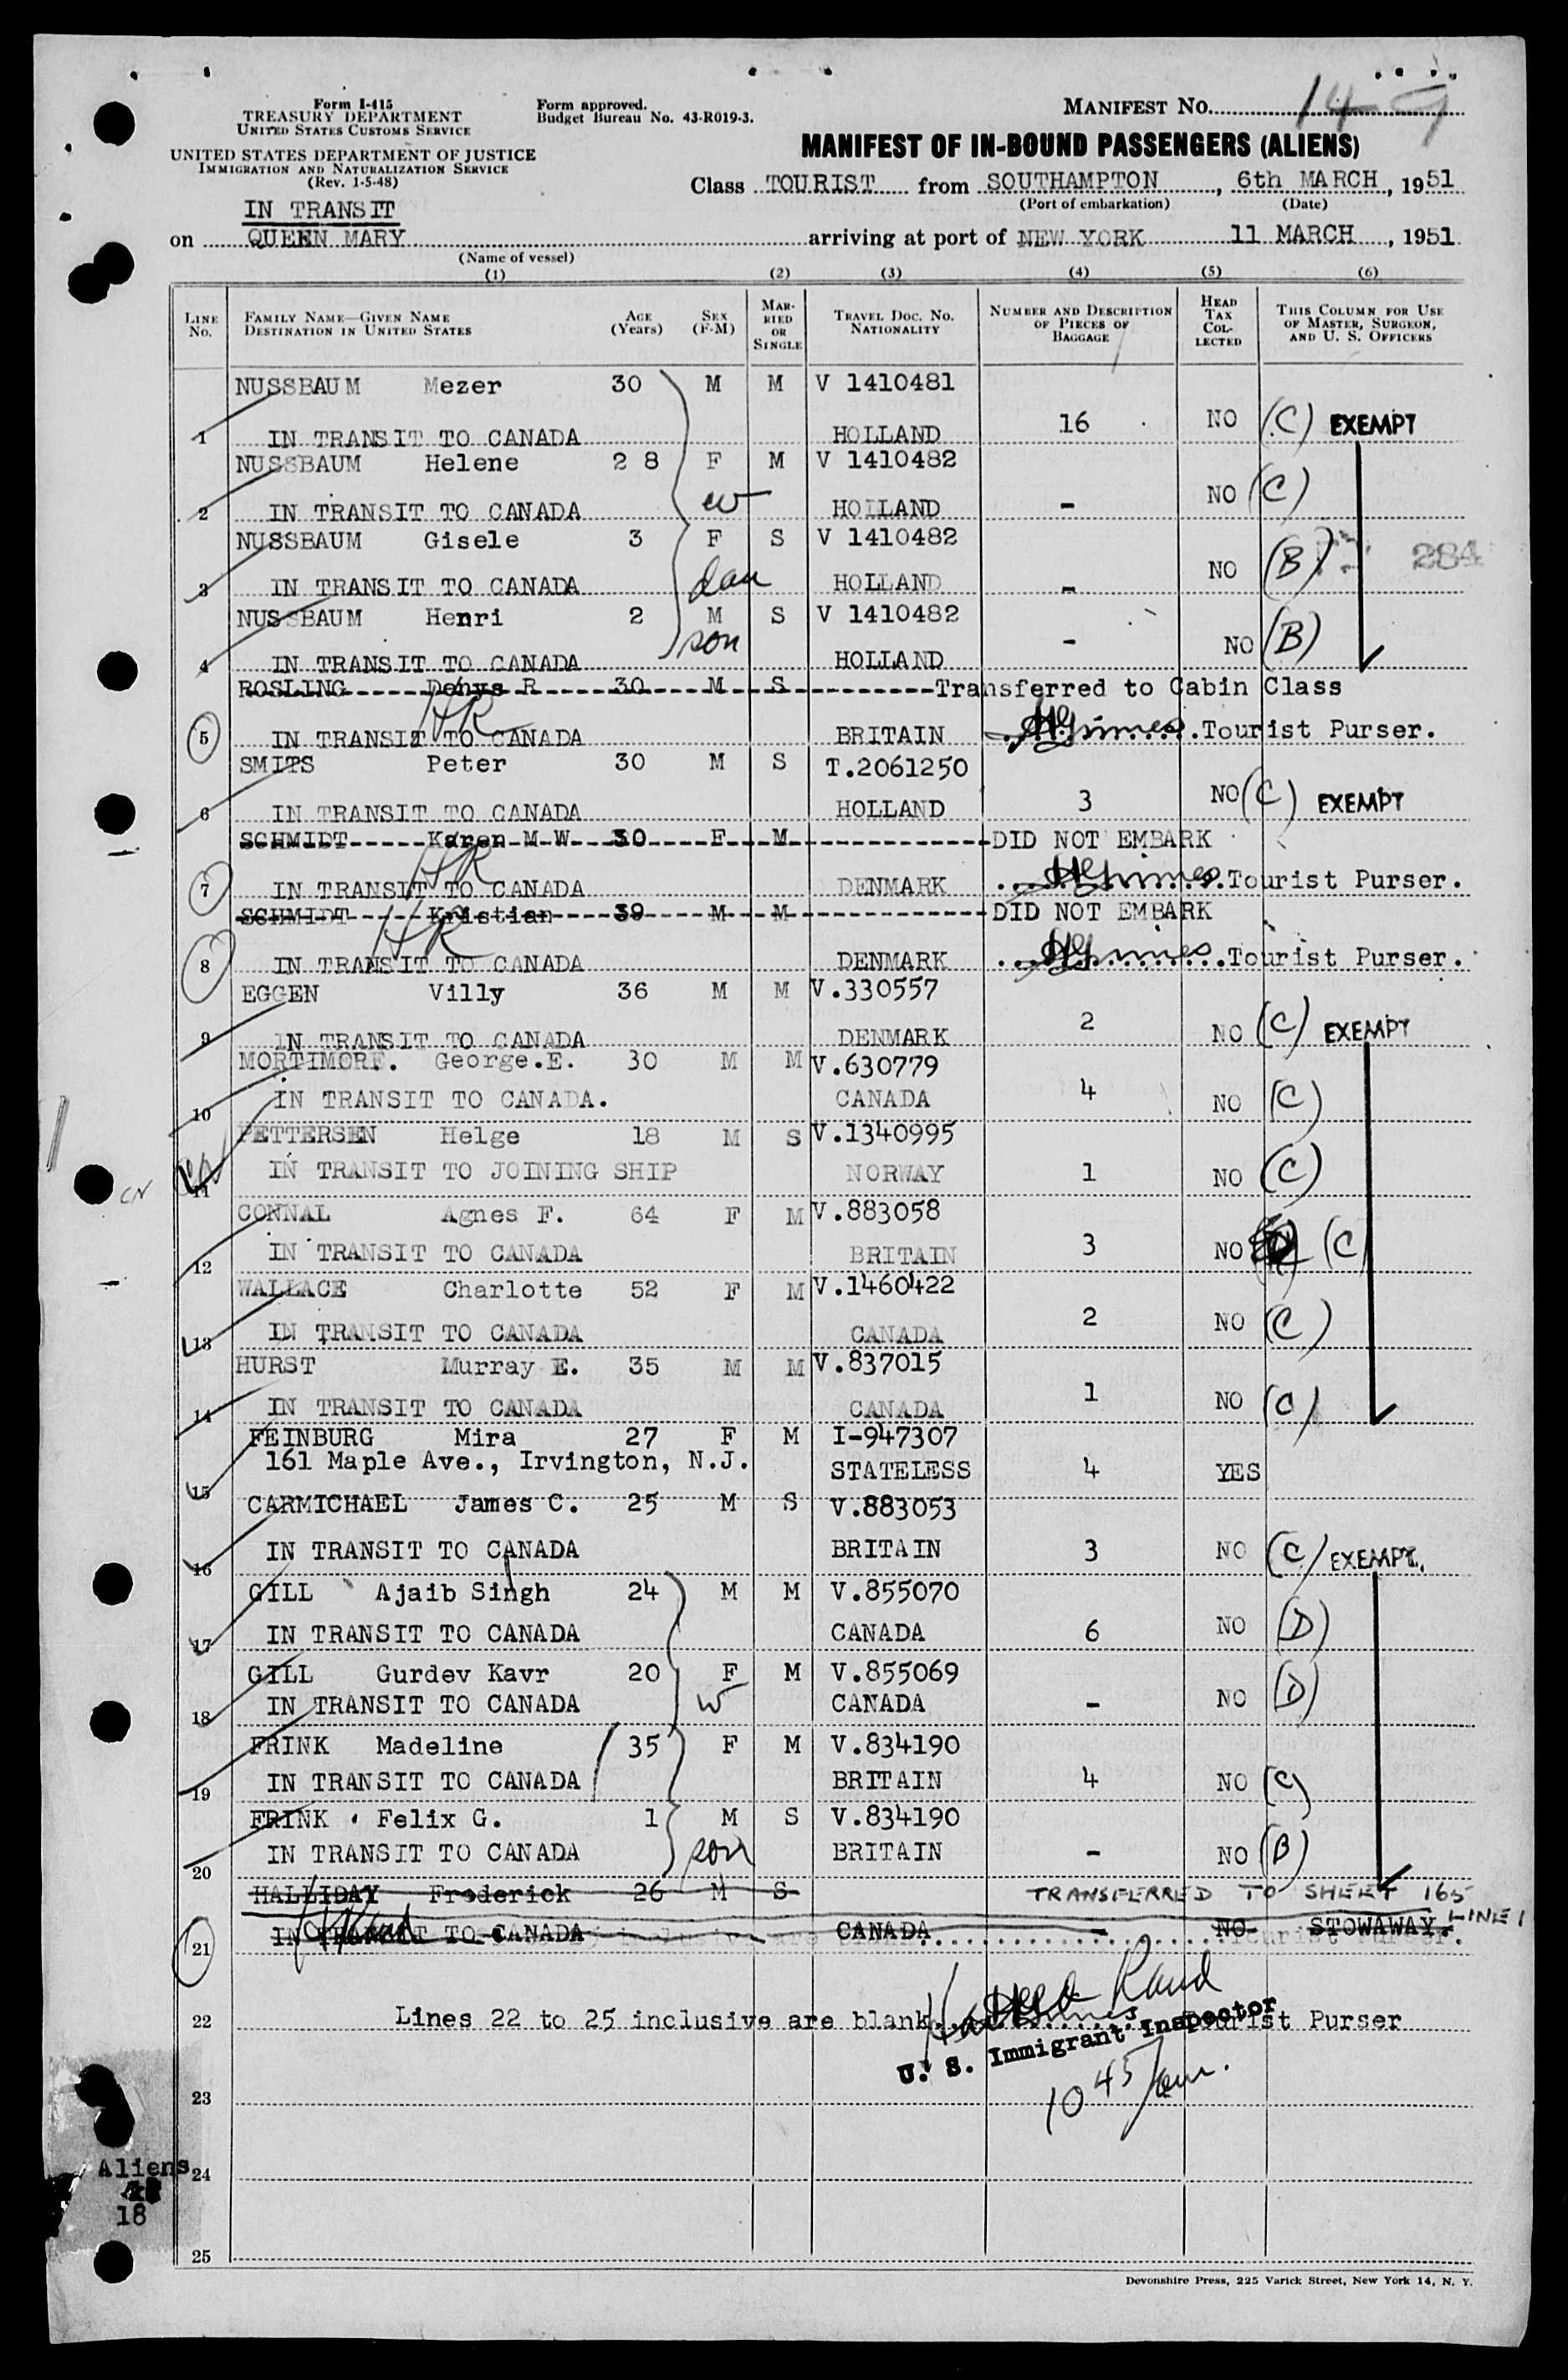 Form I-415
TREASURY DEPARTMENT
UNITED STATES CUSTOMS SERVICE
UNITED STATES DEPARTMENT OF JUSTICE
IMMIGRATION AND NATURALIZATION SERVICE
(Rev. 1-5-48)
Form approved.
Budget Bureau No. 43-R019-3.
MANIFEST No.
MANIFEST OF IN-BOUND PASSENGERS (ALIENS)
Class TOURIST from SOUTHAMPTON, 6th MARCH, 1951
(Port of embarkation) (Date)
IN TRANSIT
on QUEEN MARY arriving at port of NEW YORK 11 MARCH, 1951
(Name of vessel)
(1) (2) (3) (4) (5) (6)
LINE No. FAMILY NAME—GIVEN NAME DESTINATION IN UNITED STATES AGE (Years) SEX (F-M) MARRIED OR SINGLE TRAVEL DOC. NO. NATIONALITY NUMBER AND DESCRIPTION OF PIECES OF BAGGAGE HEAD TAX COLLECTED THIS COLUMN FOR USE OF MASTER, SURGEON, AND U. S. OFFICERS
NUSSBAUM Mezer 30 M M V 1410481
1 IN TRANSIT TO CANADA HOLLAND 16 NO (C) EXEMPT
NUSSBAUM Helene 28 F M V 1410482
2 IN TRANSIT TO CANADA w HOLLAND - NO (C)
NUSSBAUM Gisele 3 F S V 1410482
3 IN TRANSIT TO CANADA dau HOLLAND - NO (B) 284
NUSSBAUM Henri 2 M S V 1410482
4 IN TRANSIT TO CANADA son HOLLAND - NO (B)
ROSLING Denys R 30 M S Transferred to Cabin Class
5 IN TRANSIT TO CANADA BRITAIN Tourist Purser.
SMITS Peter 30 M S T.2061250
6 IN TRANSIT TO CANADA HOLLAND 3 NO (C) EXEMPT
SCHMIDT Karen M W 30 F M DID NOT EMBARK
7 IN TRANSIT TO CANADA DENMARK Tourist Purser.
SCHMIDT Kristian 39 M M DID NOT EMBARK
8 IN TRANSIT TO CANADA DENMARK Tourist Purser.
EGGEN Villy 36 M M V.330557
9 IN TRANSIT TO CANADA DENMARK 2 NO (C) EXEMPT
MORTIMORE. George.E. 30 M M V.630779
10 IN TRANSIT TO CANADA. CANADA 4 NO (C)
PETTERSEN Helge 18 M S V.1340995
CN 11 IN TRANSIT TO JOINING SHIP NORWAY 1 NO (C)
CONNAL Agnes F. 64 F M V.883058
12 IN TRANSIT TO CANADA BRITAIN 3 NO (C)
WALLACE Charlotte 52 F M V.1460422
13 IN TRANSIT TO CANADA CANADA 2 NO (C)
HURST Murray E. 35 M M V.837015
14 IN TRANSIT TO CANADA CANADA 1 NO (C)
FEINBURG Mira 27 F M I-947307
15 161 Maple Ave., Irvington, N.J. STATELESS 4 YES
CARMICHAEL James C. 25 M S V.883053
16 IN TRANSIT TO CANADA BRITAIN 3 NO (C) EXEMPT.
GILL Ajaib Singh 24 M M V.855070
17 IN TRANSIT TO CANADA CANADA 6 NO (D)
GILL Gurdev Kavr 20 F M V.855069
18 IN TRANSIT TO CANADA w CANADA - NO (D)
FRINK Madeline 35 F M V.834190
19 IN TRANSIT TO CANADA BRITAIN 4 NO (C)
FRINK Felix G. 1 M S V.834190
20 IN TRANSIT TO CANADA son BRITAIN - NO (B)
HALLIDAY Frederick 26 M S TRANSFERRED TO SHEET 165 LINE 1
21 IN TRANSIT TO CANADA CANADA - NO STOWAWAY.
22 Lines 22 to 25 inclusive are blank Tourist Purser
U. S. Immigrant Inspector
10 45/am.
23
Aliens 24
18
25
Devonshire Press, 225 Varick Street, New York 14, N. Y.